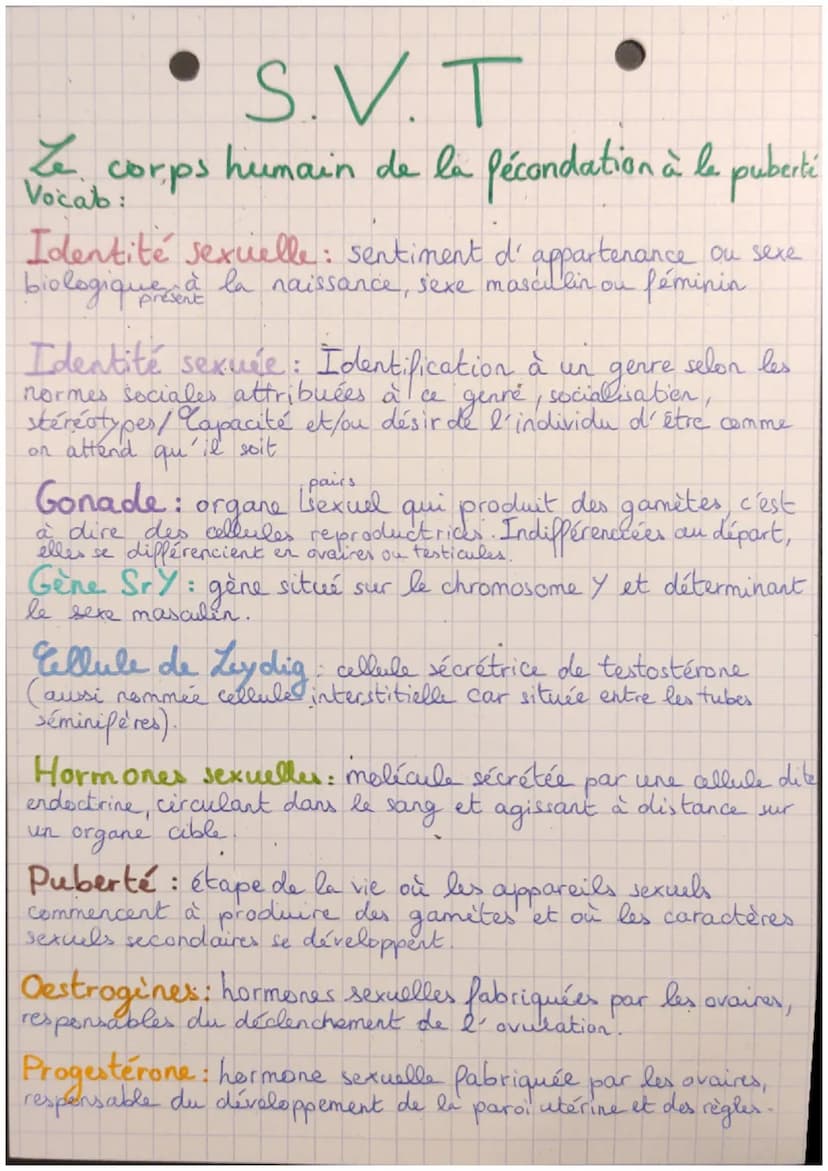 S.V.T
Le corps humain de la fécondation à la puberté
Vocab :
Identité sexuelle : sentiment d'appartenance au sexe
biologique présent à la naissance, sexe masculin ou féminin
Identité sexuée : Identification à un genre selon les
normes sociales attribuées à ce genre, socialisation,
stéréotypes / Capacité et/ou désir de l'individu d'être comme
on attend qu'il soit
Gonade : organe sexuel pairs qui produit des gamètes, c'est
à dire des cellules reproductrices. Indifférenciées au départ,
elles se différencient en ovaires ou testicules.
Gène SrY : gène situé sur le chromosome Y et déterminant
le sexe masculin.
Cellule de Leydig : cellule sécrétrice de testostérone
(aussi nommée cellule interstitielle car située entre les tubes
séminifères).
Hormones sexuelles : molécule sécrétée par une cellule dite
endoctrine, circulant dans le sang et agissant à distance sur
un organe cible.
Puberté : étape de la vie où les appareils sexuels
commencent à produire des gamètes et où les caractères
sexuels secondaires se développent.
Oestrogènes : hormones sexuelles fabriquées par les ovaires,
responsables du déclenchement de l'ovulation.
Progestérone : hormone sexuelle fabriquée par les ovaires,
responsable du développement de la paroi utérine et des règles.